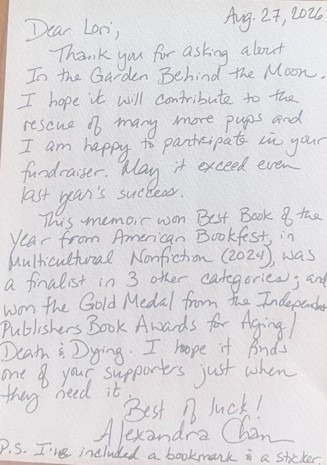 Aug. 27, 2026
Dear Lori,
Thank you for asking about
In the Garden Behind the Moon.
I hope it will contribute to the
rescue of many more pups and
I am happy to participate in your
fundraiser. May it exceed even
last year's success.
This memoir won Best Book of the
Year from American Bookfest, in
Multicultural Nonfiction (2024), was
a finalist in 3 other categories; and
won the Gold Medal from the Independent
Publishers Book Awards for Aging/
Death & Dying. I hope it finds
one of your supporters just when
they need it.
Best of luck!
Alexandra Chan
P.S. I've included a bookmark & a sticker